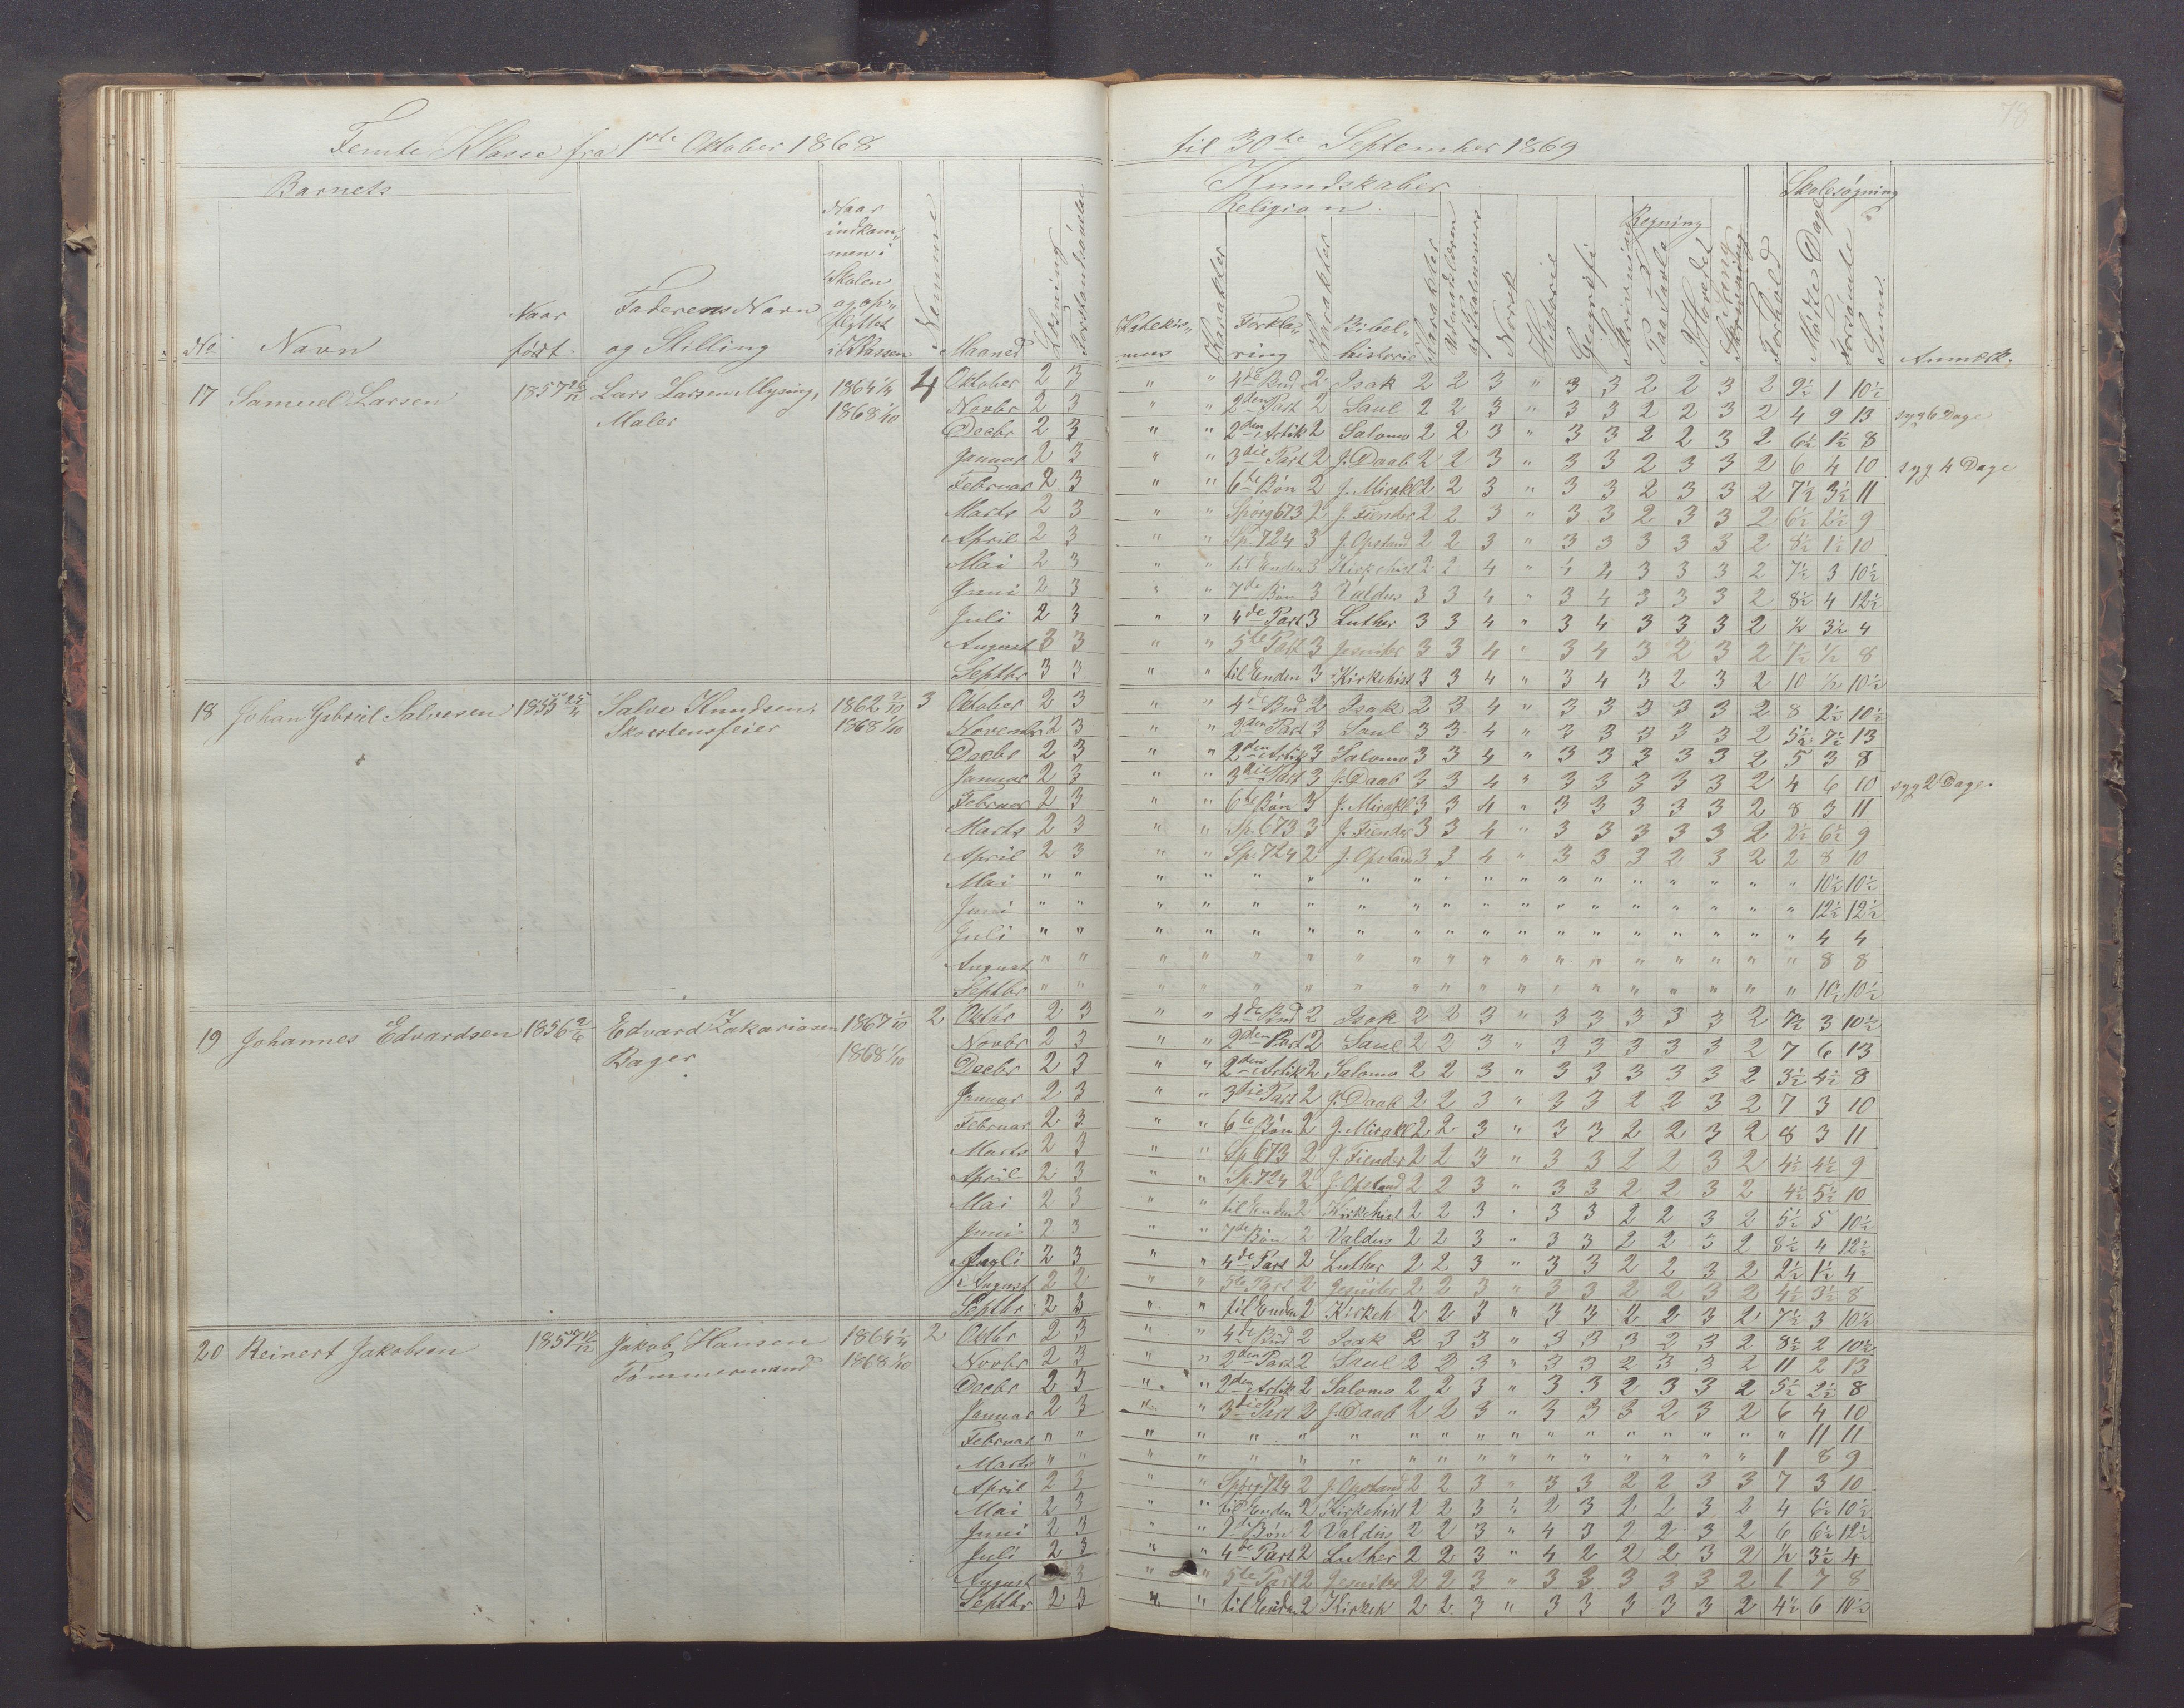 Femte Klasse fra 1ste Oktober 1868 til 30te September 1869
78
Barnets
Kundskaber
Skolesøgning
Religion
Regning
No Navn Naar født. Faderens Navn og Stilling Naar indkommen i Skolen og opflyttet i Klassen Nemme Maaned Læsning Forstandsøvelse
Katekismus Karakter Forklaring Karakter Bibelhistorie Karakter Udenadslæren af Psalmevers Norsk Historie Geografi Skrivning Paa Tavle I Hovedet Sang Forhold Mødte Dage Forsømte Sum Anmerk.
17 Samuel Larsen 1857 Lars Larsen Mysing, Maler 1864 1/4 1868 1/10 4
Oktober 2 3 " " 4de Bud 2 Isak 2 2 3 " 3 3 2 2 3 2 9½ 1 10½
Novbr 2 3 " " 2den Part 2 Saul 2 2 3 " 3 3 2 2 3 2 4 9 13 syg 6 Dage
Decbr 2 3 " " 2den Artik 2 Salomo 2 2 3 " 3 3 2 2 3 2 6½ 1½ 8
Januar 2 3 " " 3die Part 2 J. Daab 2 2 3 " 3 3 2 3 3 2 6 4 10 syg 4 Dage
Februar 2 3 " " 6te Bøn 2 J. Mirakl 2 2 3 " 3 3 2 3 3 2 7½ 3½ 11
Marts 2 3 " " Spørg 673 2 J. Fiender 2 2 3 " 3 3 2 3 3 2 6½ 2½ 9
April 2 3 " " Sp. 724 3 J. Opstand 2 2 3 " 3 3 3 3 3 2 8½ 1½ 10
Mai 2 3 " " til Enden 3 Kirkehist 2 2 4 " 4 4 3 3 3 2 7½ 3 10½
Juni 2 3 " " 7de Bøn 3 Valdus 3 3 4 " 3 4 3 3 3 2 8½ 4 12½
Juli 2 3 " " 4de Part 3 Luther 3 3 4 " 3 4 3 3 3 2 ½ 3½ 4
August 3 3 " " 5te Part 3 Jesuiter 3 3 4 " 3 4 3 2 3 2 7½ ½ 8
Septbr 3 3 " " til Enden 3 Kirkehist 3 3 4 " 3 4 3 2 3 2 10 ½ 10½
18 Johan Gabriel Salvesen 1855 Salve Knudsen, Skorstensfeier 1862 2/10 1868 1/10 3
Oktober 2 3 " " 4de Bud 2 Isak 2 3 4 " 3 3 3 3 3 2 8 2½ 10½
Novembr 2 3 " " 2den Part 3 Saul 3 3 4 " 3 3 3 3 3 2 5½ 7½ 13
Decbr 2 3 " " 2den Artik 3 Salomo 3 3 4 " 3 3 3 3 3 2 5 3 8
Januar 2 3 " " 3die Part 3 J. Daab 3 3 4 " 3 3 3 3 3 2 4 6 10 syg 2 Dage.
Februar 2 3 " " 6te Bøn 3 J. Mirakl 3 3 4 " 3 3 3 3 3 2 8 3 11
Marts 2 3 " " Sp. 673 3 J. Fiender 3 3 4 " 3 3 3 3 3 2 2½ 6½ 9
April 2 3 " " Sp. 724 2 J. Opstand 3 3 4 " 3 3 3 2 3 2 2 8 10
Mai " " " " " " " " " " " " " " " " " " 10½ 10½
Juni " " " " " " " " " " " " " " " " " " 12½ 12½
Juli " " " " " " " " " " " " " " " " " " 4 4
August " " " " " " " " " " " " " " " " " " 8 8
Septbr " " " " " " " " " " " " " " " " " " 10½ 10½
19 Johannes Edvardsen 1856 2/6 Edvard Zakariasen Bager 1867 1/10 1868 1/10 2
Oktbr 2 3 " " 4de Bud 2 Isak 2 2 3 " 3 3 3 3 3 2 7½ 3 10½
Novbr 2 3 " " 2den Part 2 Saul 2 2 3 " 3 3 3 3 3 2 7 6 13
Decbr 2 3 " " 2den Artik 2 Salomo 2 2 3 " 3 3 3 3 3 2 3½ 4½ 8
Januar 2 3 " " 3die Part 2 J. Daab 2 2 3 " 3 3 2 2 3 2 7 3 10
Februar 2 3 " " 6te Bøn 2 J. Mirakl 2 2 3 " 3 3 2 2 3 2 8 3 11
Marts 2 3 " " Sp 673 2 J. Fiender 2 2 3 " 3 3 2 2 3 2 4½ 4½ 9
April 2 3 " " Sp. 724 2 J. Opstand 2 2 3 " 3 3 2 2 3 2 4½ 5½ 10
Mai 2 3 " " til Enden 2 Kirkehist 2 2 3 " 3 3 2 2 3 2 5½ 5 10½
Juni 2 3 " " 7de Bøn 2 Valdus 2 2 3 " 3 3 2 2 3 2 8½ 4 12½
Juli 2 3 " " 4de Part 2 Luther 2 2 3 " 3 3 2 2 3 2 2½ 1½ 4
August 2 2 " " 5te Part 2 Jesuiter 2 2 3 " 3 3 2 2 3 2 4½ 3½ 8
Septbr 2 3 " " til Enden 2 Kirkeh 2 2 3 " 3 3 2 2 3 2 7½ 3 10½
20 Reinert Jakobsen 1857 Jakob Hansen Tømmermand 1864 1/4 1868 1/10 2
Oktbr 2 3 " " 4de Bud 2 Isak 2 3 3 " 3 3 3 2 3 2 8½ 2 10½
Novbr 2 3 " " 2den Part 2 Saul 2 3 3 " 3 3 2 3 3 2 11 2 13
Decbr 2 3 " " 2den Artik 2 Salomo 2 2 3 " 3 3 2 3 3 2 5½ 2½ 8
Januar 2 3 " " 3die Part 2 J. Daab 2 2 3 " 3 3 3 2 3 2 6 4 10
Februar " " " " " " " " " " " " " " " " " " 11 11
Marts " " " " " " " " " " " " " " " " " 1 8 9
April 2 3 " " Spørg 724 2 J. Opstand 2 2 3 " 3 3 2 2 3 3 7 3 10
Mai 2 3 " " til Enden 2 Kirkehist 2 2 3 " 2 3 2 2 3 2 4 6½ 10½
Juni 2 3 " " 7de Bøn 2 Valdus 2 2 3 " 4 3 2 2 3 2 6 6½ 12½
Juli 2 3 " " 4de Part 2 Luther 2 2 3 " 4 2 2 2 3 2 ½ 3½ 4
August 3 " " 5te Part 2 Jesuiter 2 2 3 " 3 3 3 3 3 2 1 7 8
Septbr 2 3 " " til Enden 2 Kirkeh 2 2 3 " 3 3 3 3 3 2 4½ 6 10½